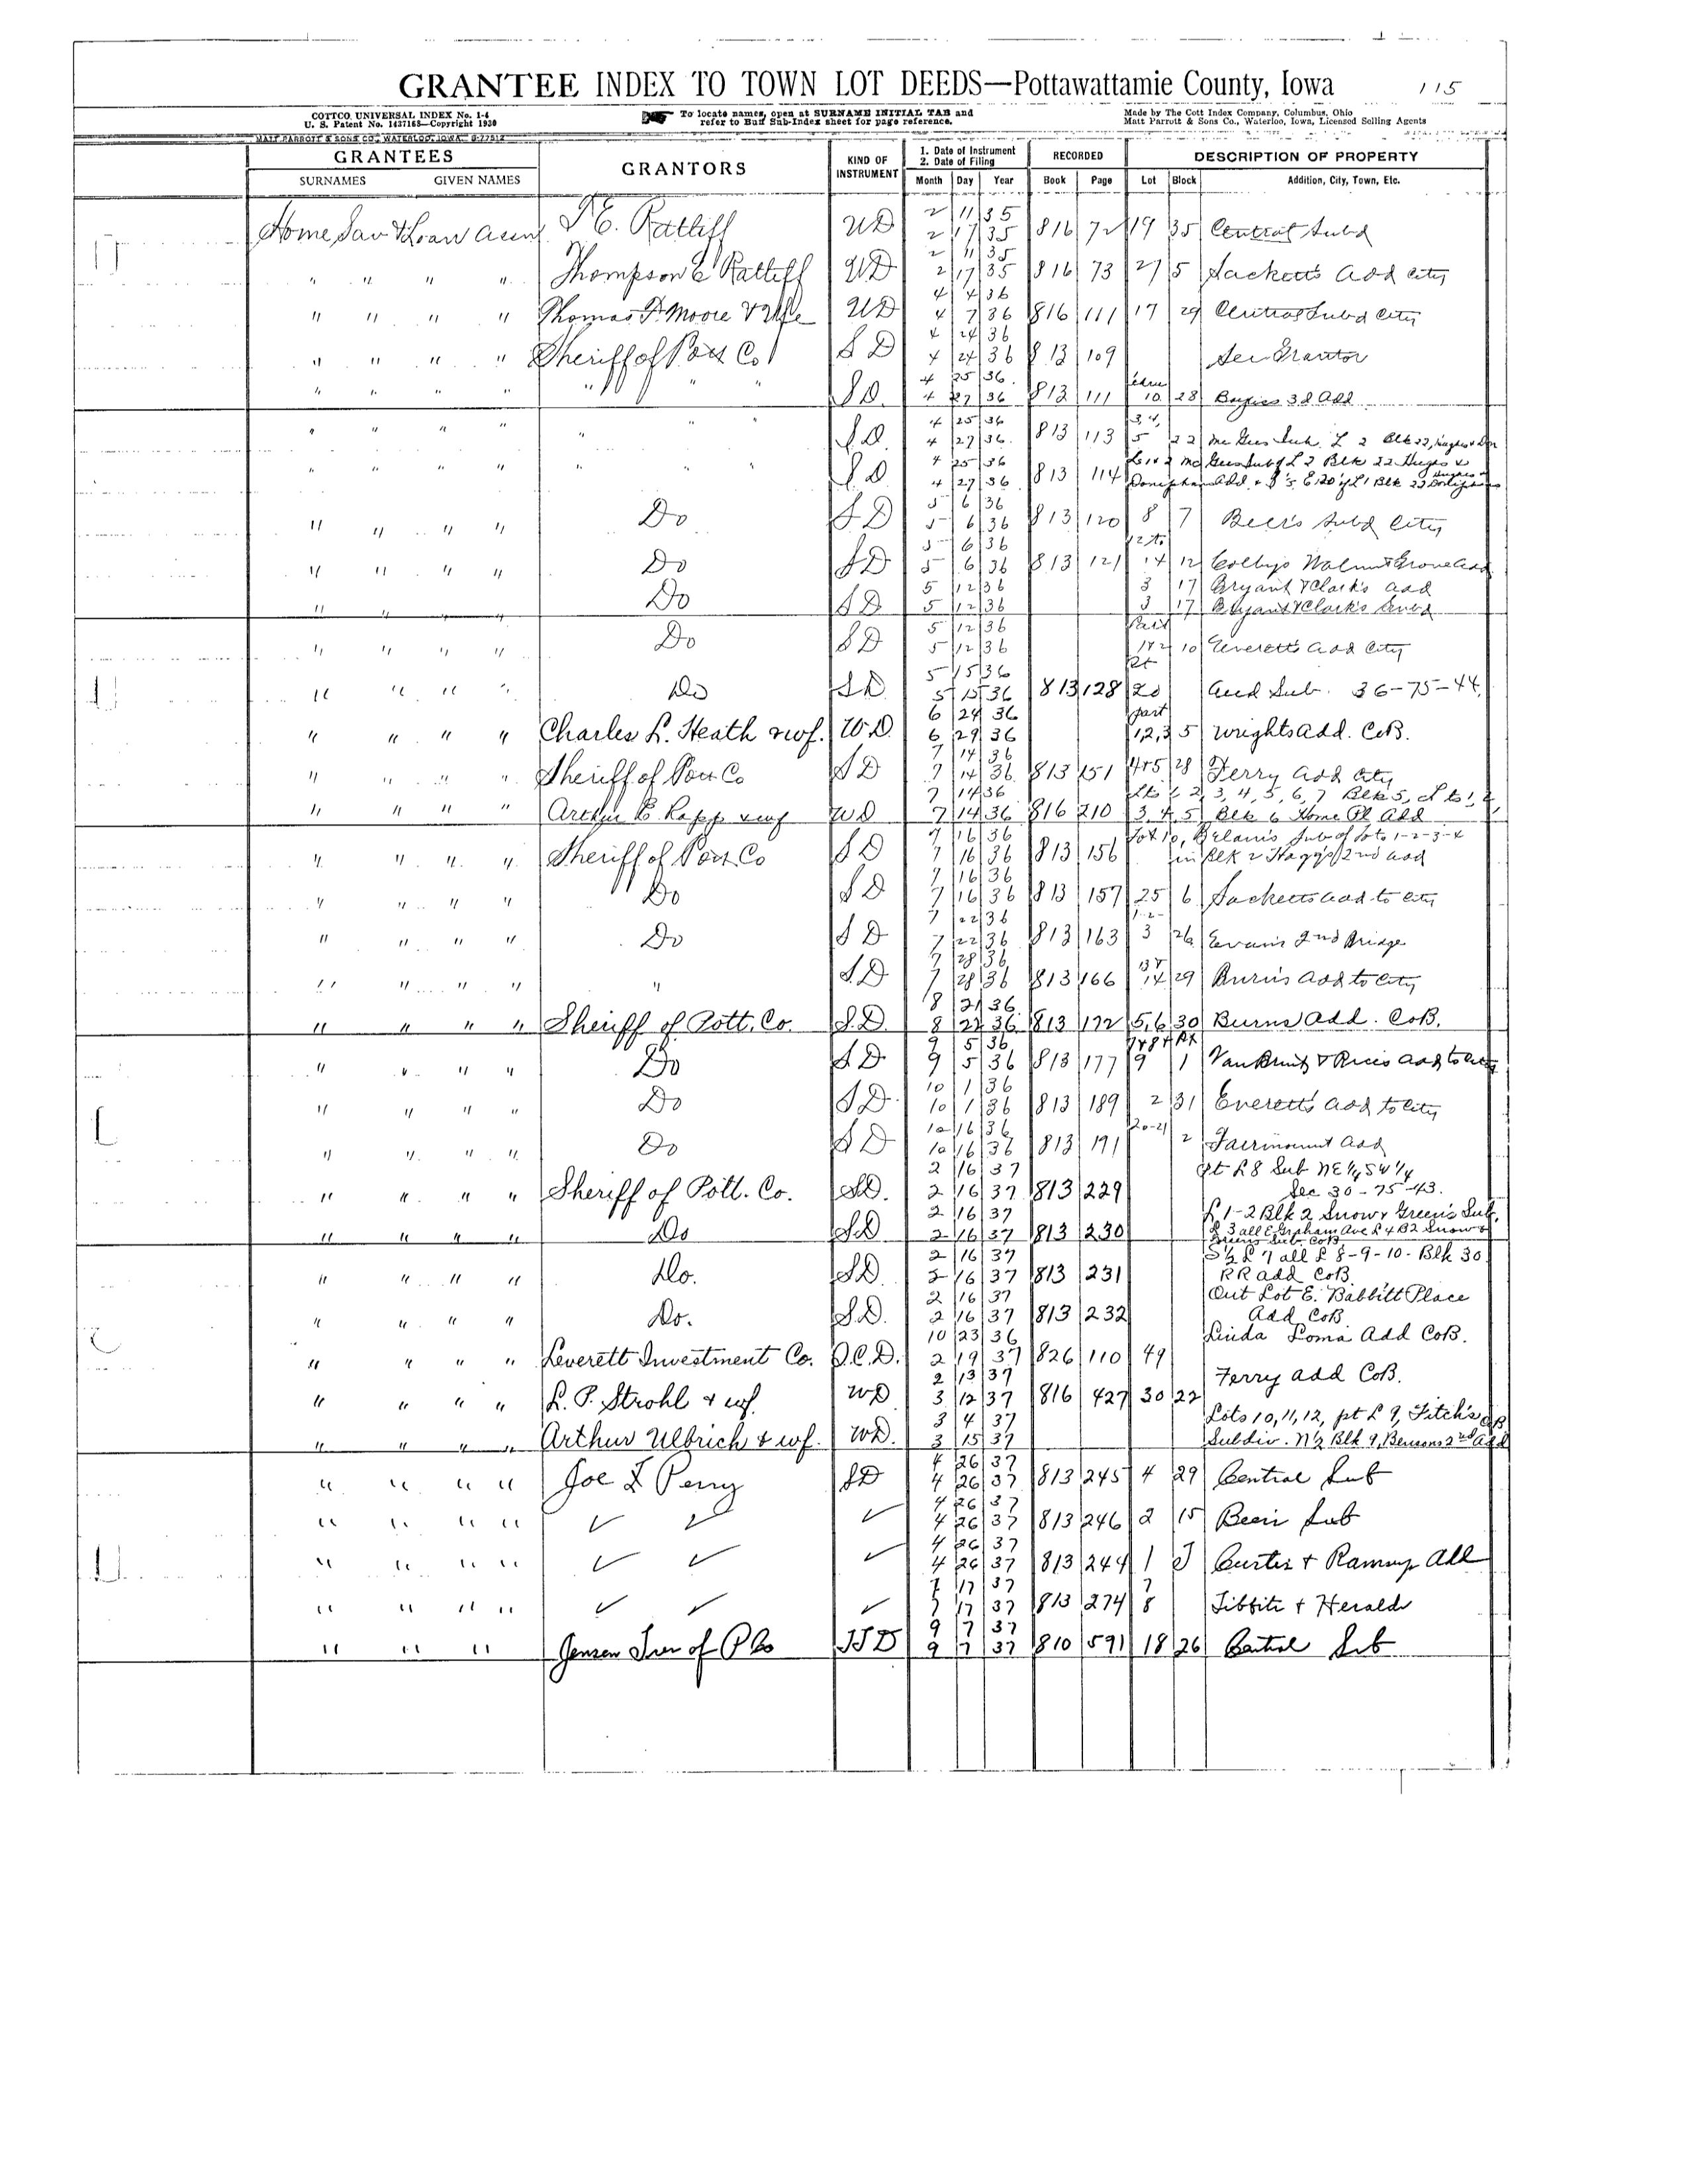 GRANTEE INDEX TO TOWN LOT DEEDS—Pottawattamie County, Iowa 115
COTTCO UNIVERSAL INDEX No. 1-4
U. S. Patent No. 1437165—Copyright 1930
To locate names, open at SURNAME INITIAL TAB and
refer to Buff Sub-Index sheet for page reference.
Made by The Cott Index Company, Columbus, Ohio
Matt Parrott & Sons Co., Waterloo, Iowa, Licensed Selling Agents
MATT PARROTT & SONS CO., WATERLOO, IOWA
GRANTEES GRANTORS KIND OF INSTRUMENT 1. Date of Instrument 2. Date of Filing RECORDED DESCRIPTION OF PROPERTY
SURNAMES GIVEN NAMES Month Day Year Book Page Lot Block Addition, City, Town, Etc.
2 11 35
Home Sav & Loan Assn T E. Ratliff WD 2 17 35 816 72 19 35 Central Subd
2 11 35
" " " " Thompson E Ratliff WD 2 17 35 816 73 27 5 Sackett's Add City
4 4 36
" " " " Thomas F. Moore & Wife WD 4 7 36 816 111 17 29 Central Subd City
4 24 36
" " " " Sheriff of Pott Co SD 4 24 36 813 109 See Grantor
4 25 36
" " " " " " " SD. 4 27 36 813 111 10 28 Bayliss 3d Add
4 25 36 3 4,
" " " " " " SD 4 27 36 813 113 5 22 Mc Gees Sub L 2 Blk 22, Hughes & Don
4 25 36 L 1 & 2 Mc Gees Sub of L 2 Blk 22 Hughes &
" " " " " " SD 4 27 36 813 114 Doniphan Add & S 5 E 120 of L 1 Blk 22 Hughes & Doniphans
5 6 36
" " " " Do SD 5 6 36 813 120 8 7 Beer's Subd City
5 6 36 12 to
" " " " Do SD 5 6 36 813 121 14 12 Colby's Walnut Grove Add
5 12 36 3 17 Bryant & Clark's Add
" " " " Do SD 5 12 36 3 17 Bryant & Clark's Subd
5 12 36 Part
" " " " Do SD 5 12 36 1&2 10 Everett's Add City
5 15 36 Pt
" " " " Do SD 5 15 36 813 128 20 Aud Sub. 36-75-44.
6 24 36 part
" " " " Charles L. Heath & wf. W.D. 6 29 36 1,2,3 5 Wrights Add. C.B.
7 14 36
" " " " Sheriff of Pott Co SD 7 14 36 813 151 4&5 28 Ferry Add City
7 14 36 Lts 1, 2, 3, 4, 5, 6, 7 Blk 5, Lts 1, 2,
" " " " Arthur E. Rapp & wf WD 7 14 36 816 210 3, 4, 5, Blk 6 Home Pl Add
7 16 36 Lot 10, Sub of Lots 1-2-3-4
" " " " Sheriff of Pott Co SD 7 16 36 813 156 in Blk 2 Hagg's 2nd Add
7 16 36
" " " " Do SD 7 16 36 813 157 25 6 Sacketts Add to City
7 22 36 1-2-
" " " " Do SD 7 22 36 813 163 3 26 Evans 2nd Bridge
7 28 36 13 &
" " " " " S.D 7 28 36 813 166 14 29 Burn's Add to City
8 21 36
" " " " Sheriff of Pott. Co. S.D. 8 22 36 813 172 5,6 30 Burns Add. C.B.
9 5 36 7&8 & Pt
" " " " Do SD 9 5 36 813 177 9 1 Van Brunt & Rice's Add to City
10 1 36
" " " " Do SD 10 1 36 813 189 2 31 Everett's Add to City
10 16 36 20-21
" " " " Do SD 10 16 36 813 191 2 Fairmount Add
2 16 37 pt L 8 Sub NE¼ SW¼
" " " " Sheriff of Pott. Co. SD. 2 16 37 813 229 Sec 30-75-43.
2 16 37 L 1-2 Blk 2 Snow & Green's Sub,
" " " " Do SD 2 16 37 813 230 L 3 all E Graham Ave L 4 B2 Snow &
Greens Sub. CoB
2 16 37 S½ L 7 all L 8-9-10- Blk 30
" " " " Do. SD. 2 16 37 813 231 RR Add CoB.
2 16 37 Out Lot E. Babbitt Place
" " " " Do. S.D. 2 16 37 813 232 Add CoB
10 23 36 Linda Loma Add CoB.
" " " " Leverett Investment Co. Q.C.D. 2 19 37 826 110 49
2 13 37 Ferry Add CoB.
" " " " L. P. Strohl & wf. WD 3 12 37 816 427 30 22
3 4 37 Lots 10, 11, 12, pt L 9, Fitch's
" " " " Arthur Ulbrich & wf. WD. 3 15 37 Subdiv. N½ Blk 9, Bensons 2nd Add
4 26 37
" " " " Joe L Perry SD 4 26 37 813 245 4 29 Central Sub
4 26 37
" " " " ✓ ✓ ✓ 4 26 37 813 246 2 15 Beers Sub
4 26 37
" " " " ✓ ✓ ✓ 4 26 37 813 244 1 J Curtis & Ramsey Add
7 17 37 7
" " " " ✓ ✓ ✓ 7 17 37 813 274 8 Tibbits & Herald
9 7 37
" " " Jensen Tres of P Co TTD 9 7 37 810 591 18 26 Central Sub